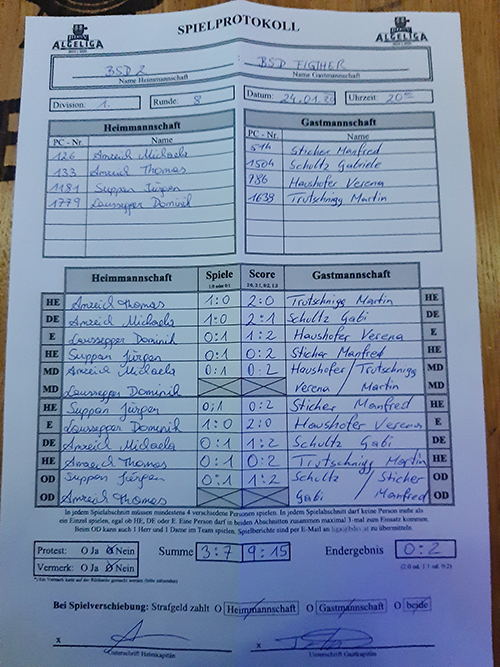 SPIELPROTOKOLL
ALGELIGA
ALGELIGA
BSD 2 : BSD FIGTHER
Name Heimmannschaft Name Gastmannschaft
Division: 1. Runde: 8 Datum: 24.01.20 Uhrzeit: 20
Heimmannschaft Gastmannschaft
PC - Nr. Name PC - Nr. Name
126 Anzeid Michaela 514 Sticher Manfred
133 Anzeid Thomas 1504 Schultz Gabriele
1181 Suppan Jürgen 786 Haushofer Verena
1779 Laussepper Dominik 1638 Trutschnigg Martin
Heimmannschaft Spiele Score Gastmannschaft
1:0 oder 0:1 2:0, 2:1, 0:2, 1:2
HE Anzeid Thomas 1:0 2:0 Trutschnigg Martin HE
DE Anzeid Michaela 1:0 2:1 Schultz Gabi DE
E Laussepper Dominik 0:1 1:2 Haushofer Verena E
HE Suppan Jürgen 0:1 0:2 Sticher Manfred HE
MD Anzeid Michaela 0:1 0:2 Haushofer / Trutschnigg MD
MD Laussepper Dominik Verena / Martin MD
HE Suppan Jürgen 0:1 0:2 Sticher Manfred HE
E Laussepper Dominik 1:0 2:0 Haushofer Verena E
DE Anzeid Michaela 0:1 1:2 Schultz Gabi DE
HE Anzeid Thomas 0:1 0:2 Trutschnigg Martin HE
OD Suppan Jürgen 0:1 1:2 Schultz / Sticher OD
OD Anzeid Thomas Gabi / Manfred OD
In jedem Spielabschnitt müssen mindestens 4 verschiedene Personen spielen. In jedem Spielabschnitt darf keine Person mehr als
ein Einzel spielen, egal ob HE, DE oder E. Eine Person darf in beiden Abschnitten zusammen maximal 3-mal zum Einsatz kommen.
Beim OD kann auch 1 Herr und 1 Dame im Team spielen. Spielberichte sind per E-Mail an zu übermitteln.
Protest: O Ja O Nein Summe 3:7 9:15 Endergebnis 0:2
Vermerk: O Ja O Nein (2:0 od. 1:1 od. 0:2)
Bei Spielverschiebung: Strafgeld zahlt O Heimmannschaft O Gastmannschaft O beide
x x
Unterschrift Heimkapitän Unterschrift Gastkapitän